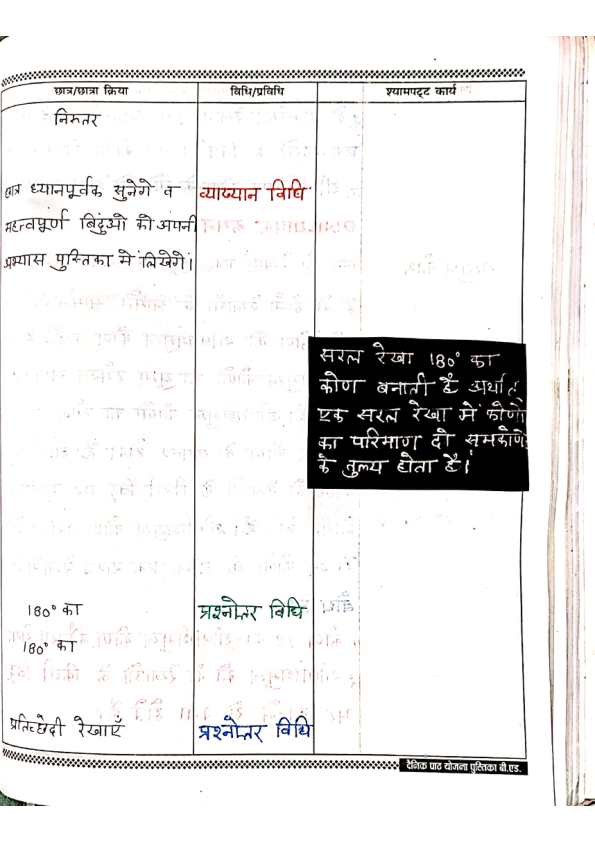 छात्र/छात्रा क्रिया विधि/प्रविधि श्यामपट्ट कार्य
निरुतर
छात्र ध्यानपूर्वक सुनेगे व व्याख्यान विधि
महत्वपूर्ण बिंदुओ को अपनी
अभ्यास पुस्तिका में लिखेगें।
सरल रेखा 180° का
कोण बनाती है अर्थात्
एक सरल रेखा में कोणो
का परिमाण दो समकोणो
के तुल्य होता है।
180° का प्रश्नोतर विधि
180° का
प्रतिच्छेदी रेखाएँ प्रश्नोतर विधि
दैनिक पाठ योजना पुस्तिका बी.एड.